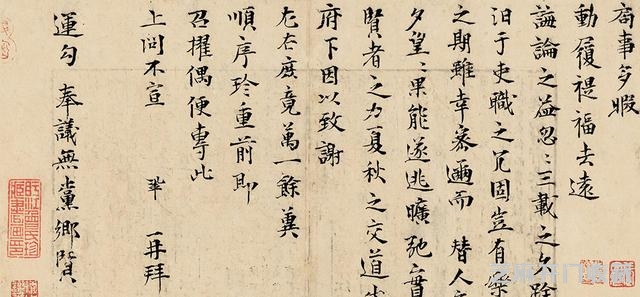 局事多暇
動履禔福去遠
誨論之益忽〻三載之久跧
汨于吏職之冗固豈有樂
之期雖幸密邇而 替人
夕望〻果能遂逃曠弛實
賢者之力夏秋之交道
府下因以致謝
左右庶竟萬一餘冀
順序珍重前即
召擢偶便專此
上問不宣 鞏 再拜
運勾 奉議無黨鄉賢